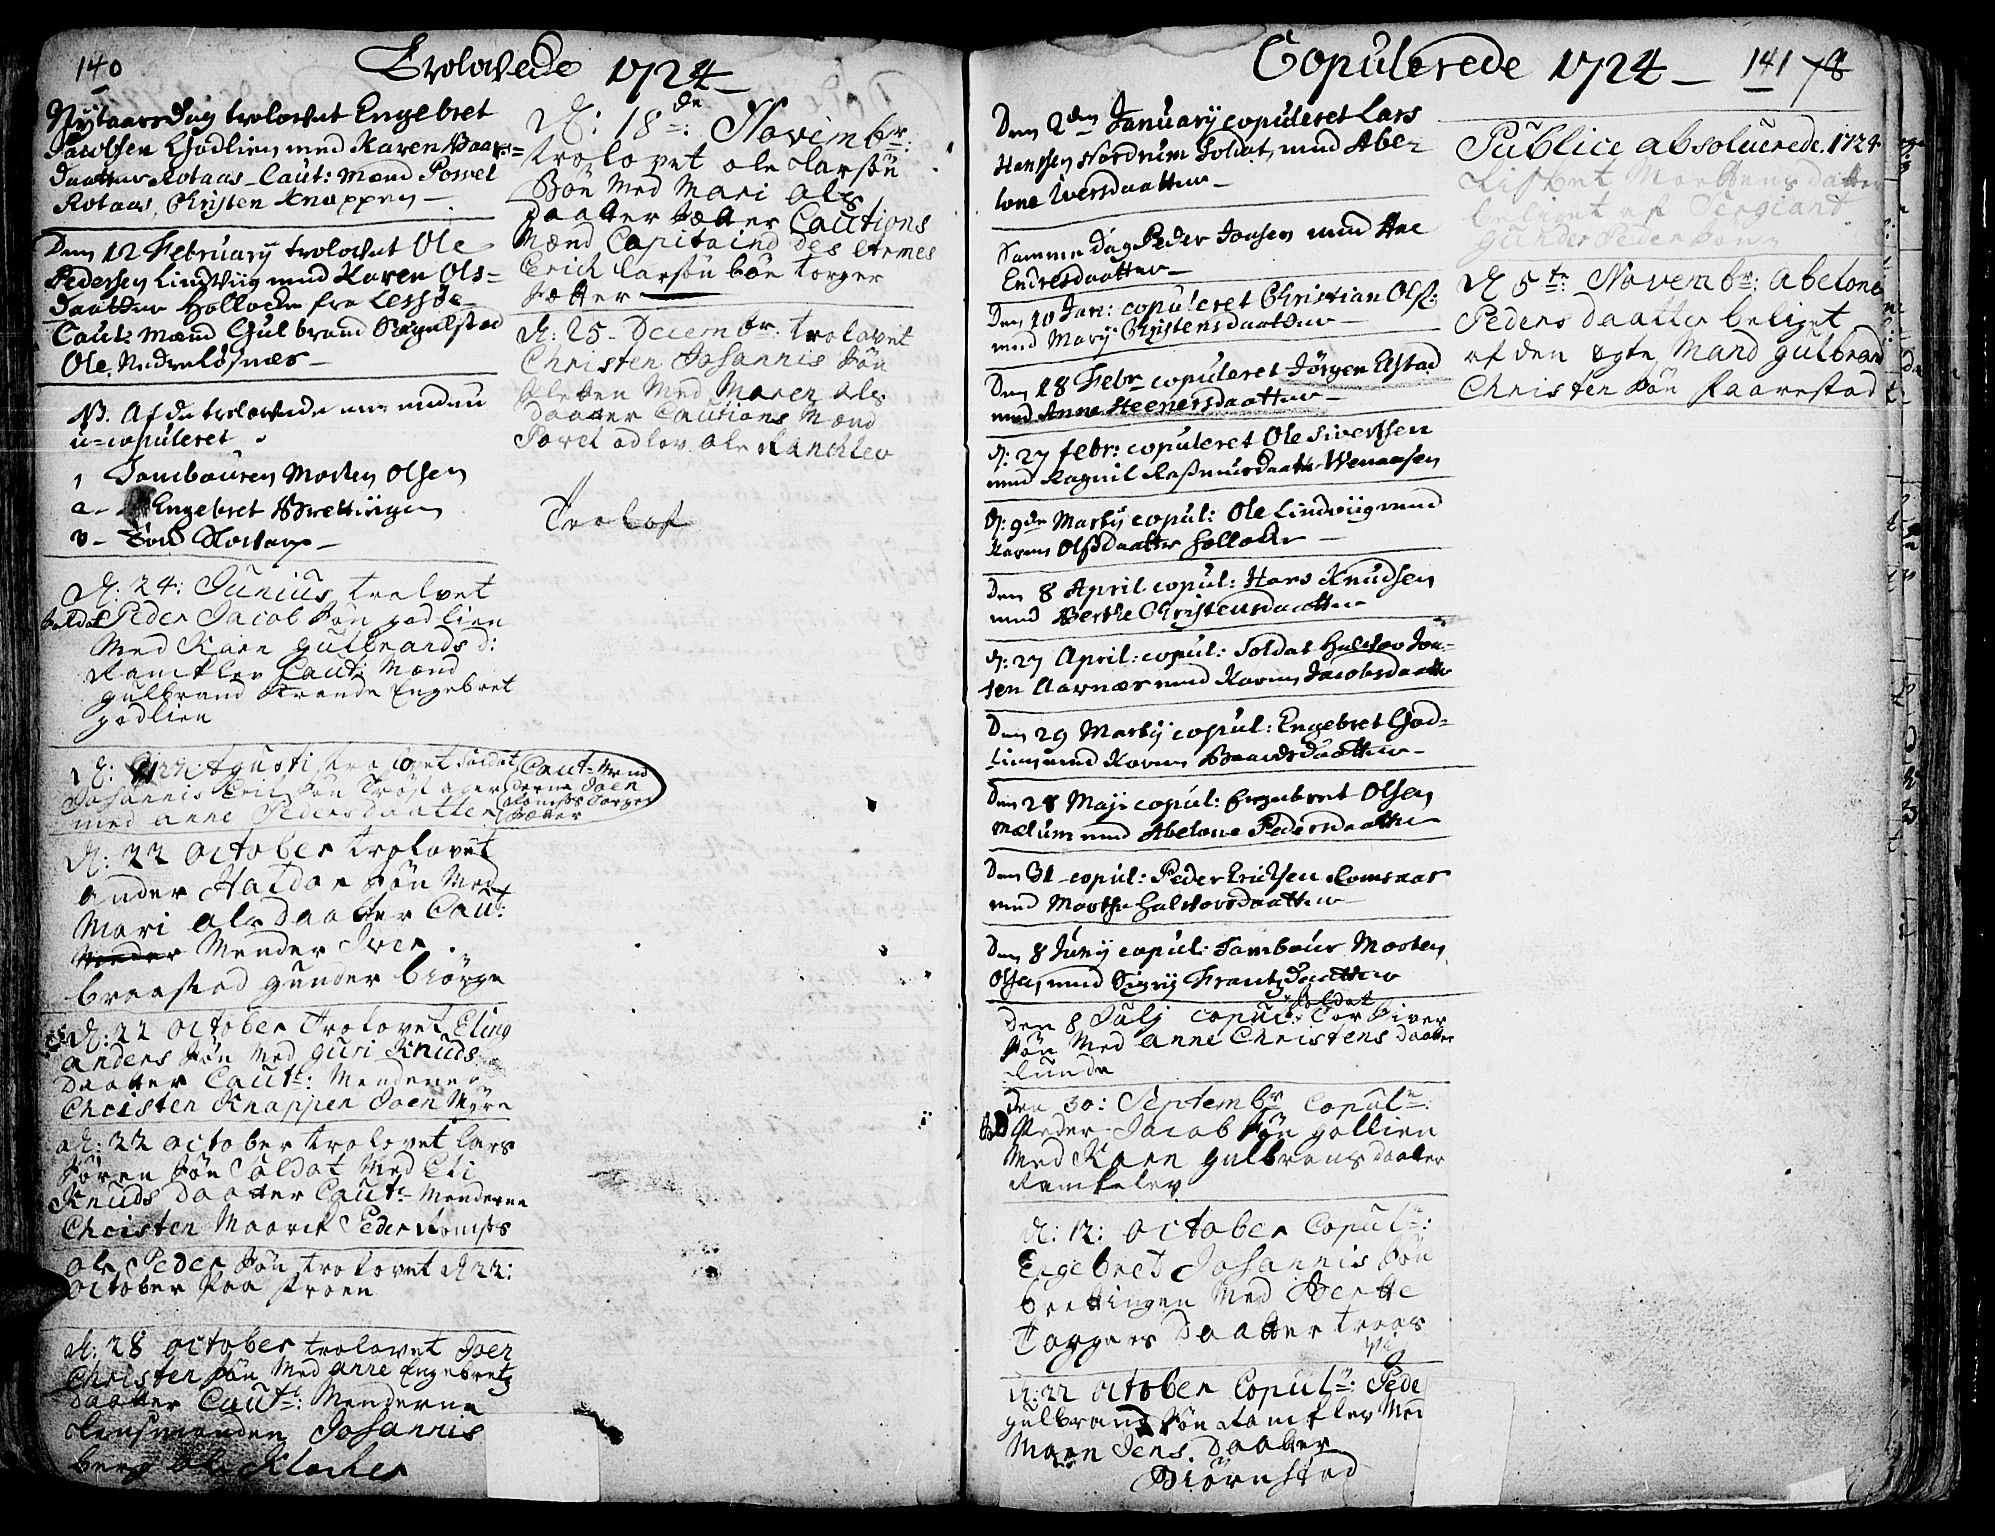 140
Trolovede 1724
Nytaarsdag trolovet Engebret
Jacobsen Godlien med Karen Baars-
daatter Rotaas Caut: mænd Powel
Rotaas, Christen Knappen
Den 12 February trolovet Ole
Pedersen Lindviig med Karen Ols-
daatter Hollocke fra Lessøe
Caut: Mænd Gulbrand Segelstad
Ole Nedreløsnæs
NB. Af de trolovede ere endnu
u-copuleret
1 Tambouren Morten Olsen
2- Engebret Brettingen
3-
d: 24: Junius trolvet
Soldat Peder Jacob søn godlien
Med Karn gulbrands d:
Ramklev Caut: Mænd
gulbrand Strande Engebret
godlien
d: 22: Agusti trolovet Soldat
Johannis søn
med anne Pedersdaatter
Caut: Mend
derne Joen
Torger
Sætter
d: 22 october trolovet
ander Haldor søn Med
Mari ols Daatter Caut:
Mender Iver
braastad gunder biørge
d: 22 october Trolovet Eling
anders søn Med guri Knuds
Daatter Caut: Menderne
Christen Knappen Joen Myre
d: 22 october trolovet Lars
Søren søn Soldat Med Eli
Knuds Daatter Caut: Menderne
Christen Maarik Peder Romsos
ole Peder søn trolovet d 22:
october paa stroen
d: 28 october trolovet Iver
Christen søn Med anne Engebrets
Daatter Caut: Menderne
lensmanden Johannis
berg ole Klocker
d: 18de: Novembr:
trolovet ole Larsøn
Bøn Med Mari ols
Daatter Sætter Cautions
Mænd Capitaind des Armes
Erich Larsøn bøn torger
Sætter
d: 25 Decembr: trolovit
Christen Johannis søn
Kletten Med Maren ols
Daatter Cautions Mænd
Povel odlov ole Ranchlev
Trolof
Copulerede 1724 141 78
Den 2den January copuleret Lars
Hanssen Nordrum Soldat, med Abe-
lone Iversdaatter
Samme dag Peder Jonsen med Ane
Endresdaatter
Den 10 Jan: copuleret Christian Ols:
med Mary Christensdaatter
Den 18 Febr copuleret Jørgen Elstad
med Anne Steenersdaatter
d: 27 febr: copuleret Ole Sivertsen
med Ragnil Rasmusdaatter Wenaasen
d: 9de Marty copul: Ole Lindviig med
Karen Olsdaatter Hollocke
Den 8 April copul: Hans Knudsen
med Berthe Christensdaatter
d: 27 April: copul: Soldat Halvor Jon-
sen Aarnæs med Karen Jacobsdaatter
Den 29 Marty copul: Engebret God-
lien med Karen Baardsdaatter
Den 28 Maji copul: Engebret Olsen
Mælum med Abelone Pedersdaatter
Den 31 copul: Peder Erichsen Romsaas
med Marthe Halvorsdaatter
Den 8 Juny copul: Tambour Morten
Olsen med Sigrij Frantzdaatter
Den 8 Julj copul: Soldat Tor Siver
søn Med anne Christens Daatter
Lunde
Den 30: Septembr Copulr:
Peder Jacob søn gollien
Med Karn gulbrans Daatter
Ramkelev
d: 12: october Copulr:
Engebret Johannis søn
brettingen Med Berte
Torgers Daatter traas
d: 22 october Copulr: Pede
gulbrand søn Ramklev Med
Marn Jens Daatter
Biørnstad
Publice absoluerede. 1724
Lisbet Mortens datter
beliget af Sergiant
gunder Peder søn
d 5te: Novembr: abelone
Peders daatter beliget
af den egte Mand gulbrand
Christen søn faarestad